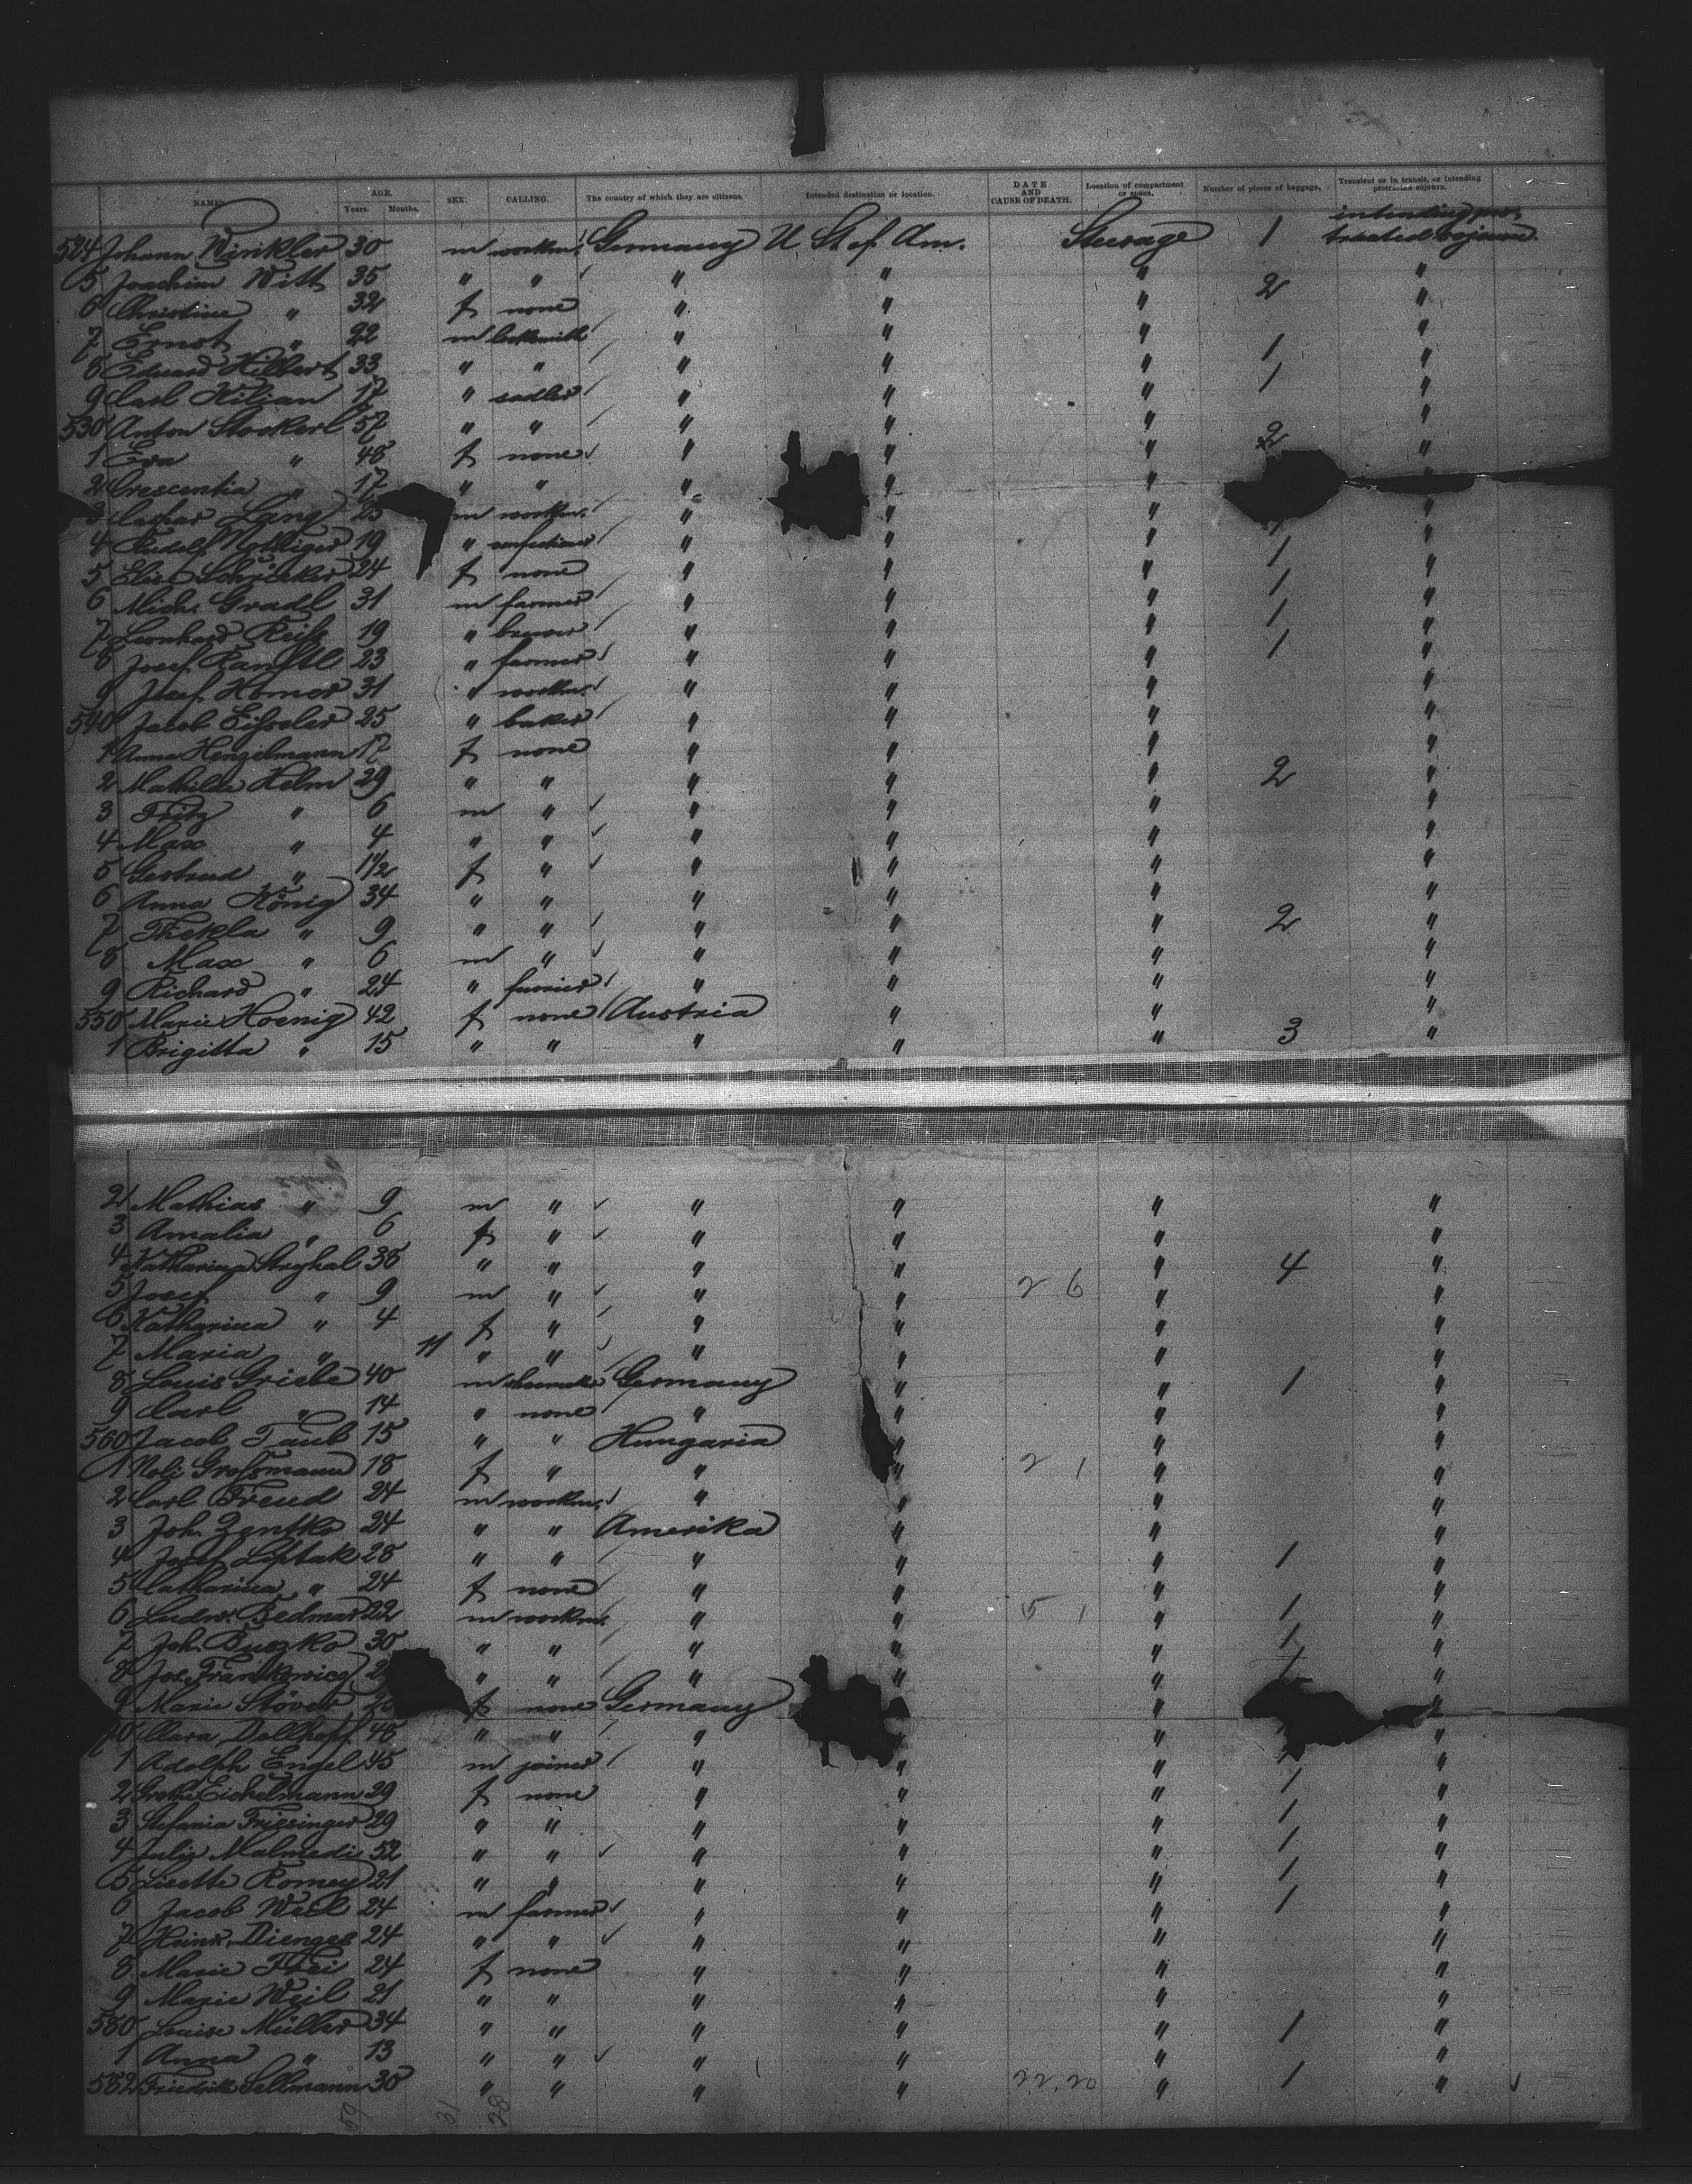 NAMES. AGE. Years. Months. SEX. CALLING. The country of which they are citizens. Intended destination or location. DATE AND CAUSE OF DEATH. Location of compartment or space. Number of pieces of baggage. Transient or in transit, or intending protracted sojourn.
524 Johann Winkler 30 m workm. Germany U. St. of Am. Steerage 1 intending pro-
tracted sojourn.
5 Joachim Witt 35 " " " " " 2 "
6 Christine " 32 f none " " " "
7 Ernst " 22 m locksmith " " " 1 "
8 Eduard Hilbert 33 " " " " " 1 "
9 Carl Kilian 17 " sadler " " " "
530 Anton Stockerl 57 " " " " " 2 "
1 Eva " 48 f none " " " "
2 Crescentia " 17 " " " " "
3 Caspar Lang 25 m workm. " " "
4 Rudolf 19 " " " " 1 "
5 Elise 24 f none " " " 1 "
6 Mich. Gradl 31 m farmer " " " 1 "
7 Leonhard Reiß 19 " brewer " " " 1 "
8 Josef Ranftl 23 " farmer " " " "
9 Josef Homer 31 " workm. " " " "
540 Jacob Eißeler 25 " baker " " " "
1 Anna Hengelmann 17 f none " " " "
2 Mathilde Helm 29 " " " " " 2 "
3 Fritz " 6 m " " " " "
4 Max " 4 " " " " " "
5 Gertrud " 1 1/2 f " " " " "
6 Anna König 34 " " " " " "
7 Thekla " 9 " " " " " 2 "
8 Max " 6 m " " " " "
9 Richard " 24 " furrier " " " "
550 Marie Hoenig 42 f none Austria " " "
1 Brigitta " 15 " " " " " 3 "
2 Mathias " 9 m " " " " "
3 Amalia " 6 f " " " " "
4 Katharina Stryhal 38 " " " " " 4 "
5 Josef " 9 m " " " 2 6 " "
6 Katharina " 4 f " " " " "
7 Maria " 11 " " " " " "
8 Louis Griebe 40 m Germany " " 1 "
9 Carl " 14 " none " " " "
560 Jacob Taub 15 " " Hungaria " " "
1 Großmann 18 f " " " 2 1 " "
2 Carl Freud 24 m workm. " " " "
3 Joh. Zentko 24 " " Amerika " " "
4 Josef Liptak 28 " " " " " 1 "
5 Catharina " 24 f none " " " "
6 Ludw. Bedmar 22 m workm. " " 5 1 " 1 "
7 Joh. Buczko 30 " " " " " 1 "
8 Jos. Frankowicz " " " " 1 "
9 Marie Stöver f none Germany " "
70 Clara Dellhoff 48 " " " " "
1 Adolph Engel 45 m joiner " " " "
2 Grethe Eichelmann 29 f none " " " 1 "
3 Stefania Friesinger 29 " " " " " 1 "
4 Julie Malmedie 52 " " " " " 1 "
5 Lisette Romey 21 " " " " " 1 "
6 Jacob Weil 24 m farmer " " " 1 "
7 Heinr. Dienges 24 " " " " " "
8 Marie Frei 24 f none " " " "
9 Marie Weil 21 " " " " " "
580 Louise Müller 34 " " " " " 1 "
1 Anna " 13 " " " " " "
582 Friedrike Sellmann 30 " " " " 22.20 " 1 "
59 31 28